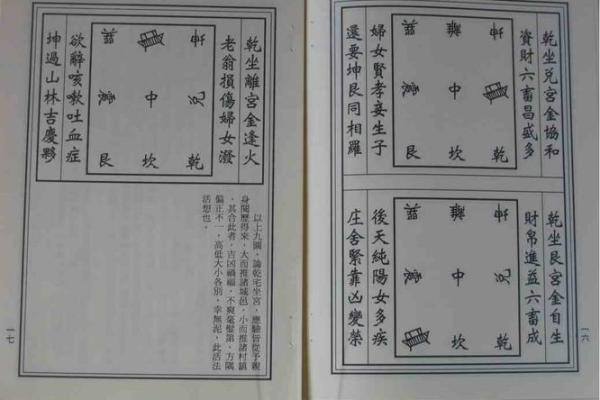 乾坐兌宮金協和
資財六畜昌盛多
巽 離 坤
震 中
艮 坎 乾
婦女賢孝妾生子
還要坤艮同相羅
乾坐艮宮金自生
財帛進益六畜成
巽 離 坤
震 中 兌
坎 乾
後天純陽女多疾
庄舍緊靠凶變榮
一六
乾坐離宮金逢火
老翁損傷婦女潑
巽 坤
震 中 兌
艮 坎 乾
欲辭咳嗽吐血症
坤過山林吉慶夥
以上九圖，論乾宅坐宮，應驗皆從予親
身閱歷得來，大而推諸城邑，小而推諸村鎮
，其合此者，吉凶禍福，不爽毫釐第，方隅
偏正不一，高低大小各別，幸無泥，此活法
活想也。
一七